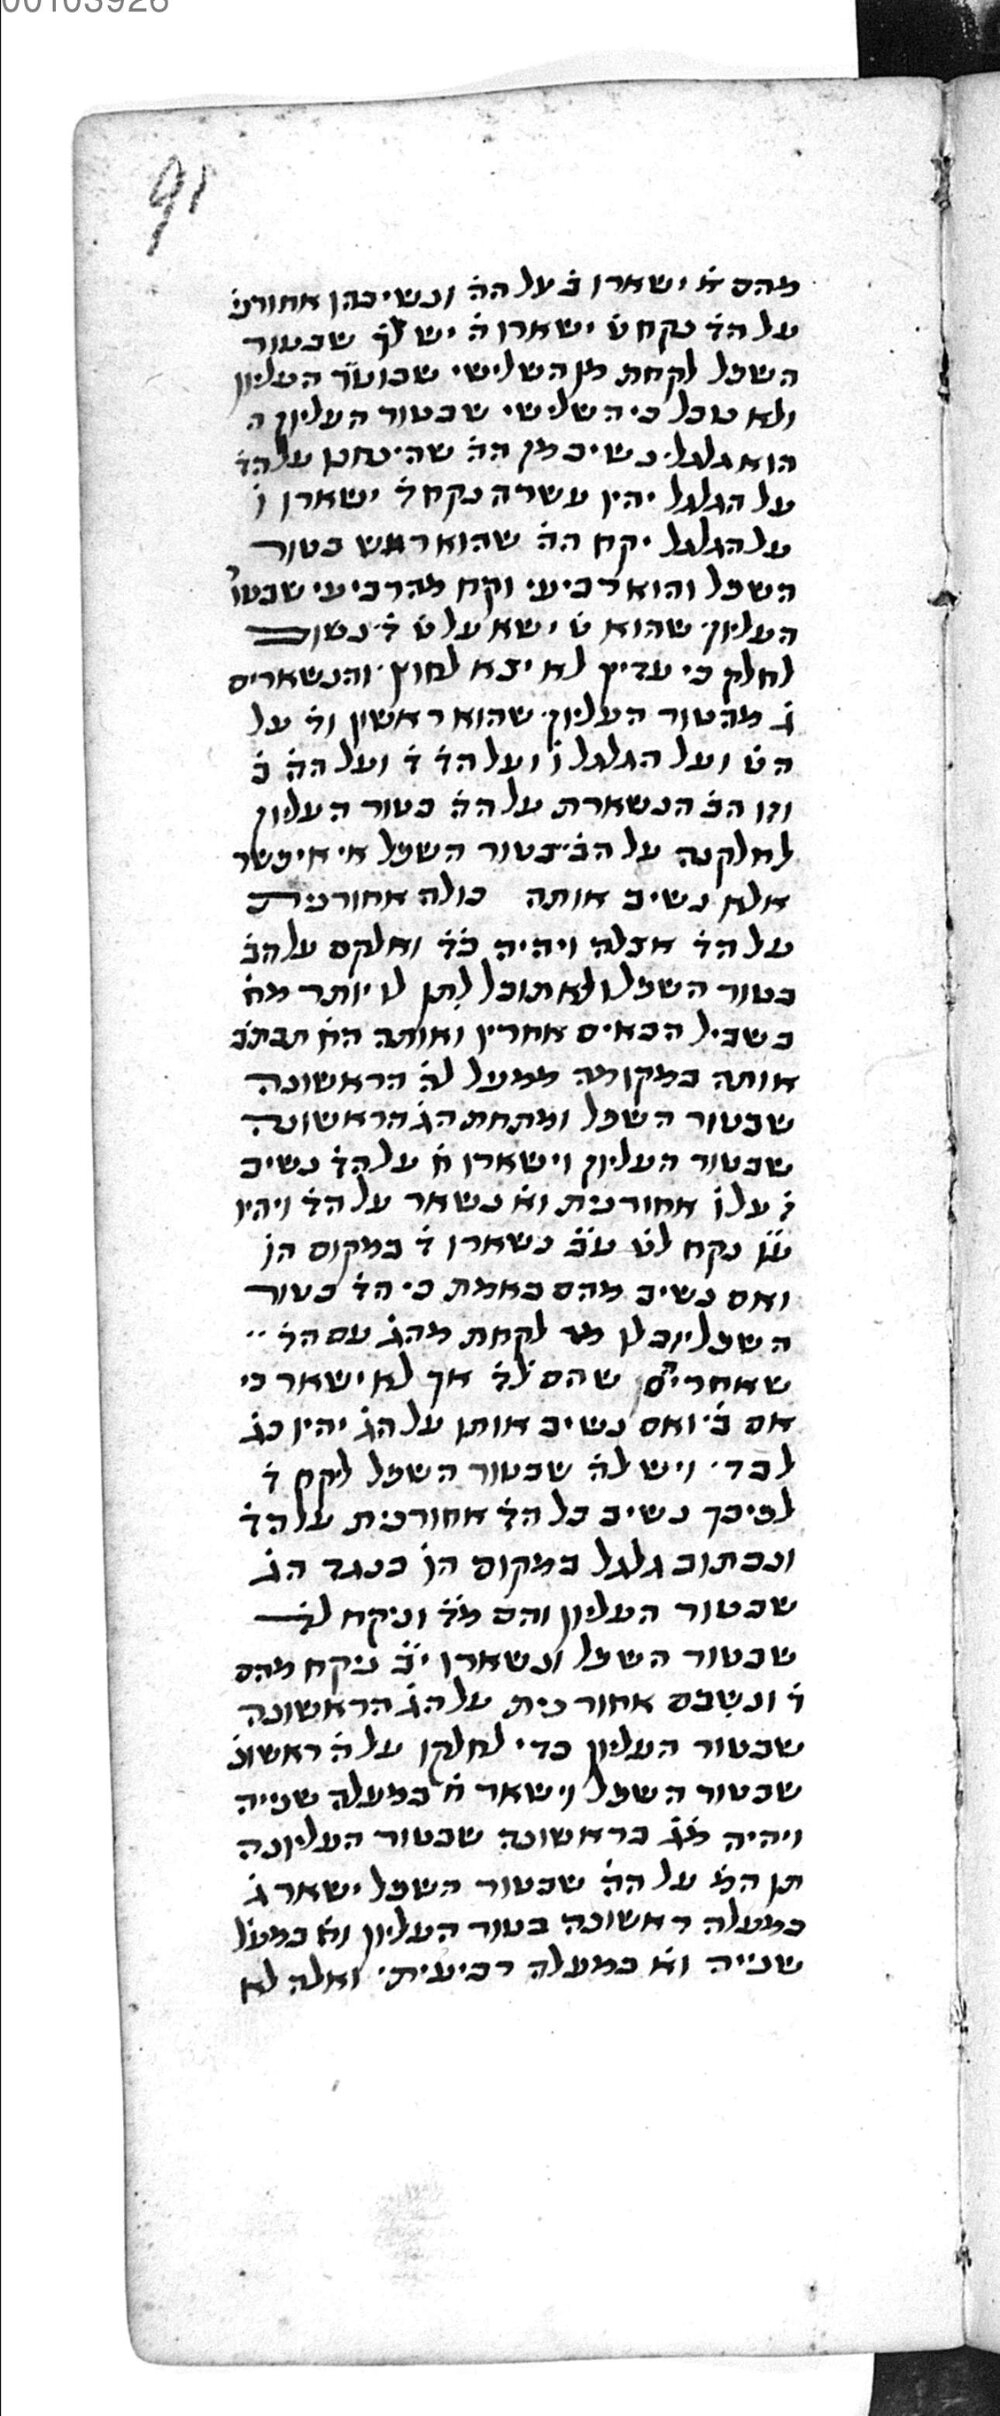 00103926
91
מהם א׳ ישארו ב׳ על הה׳ ונשיבהן אחורני׳
על הד׳ נקח ט׳ ישארו ה׳ יש לך שבטור
השפל לקחת מן השלישי שבטור העליון
ולא נוכל כי השלישי שבטור העליון ה
הוא גלגל נשיב מן הה׳ שהי׳ נתכן על הד׳
על הגלגל יהיו עשרה נקח ד׳ ישארו ו׳
על הגלגל יקח הה׳ שהוא ראש בטור
השפל והוא רביעי וקח מהרביעי שבטו׳
העליון שהוא ט׳ ישא על ט׳ ד׳
לחלק כי עדיין לא יצא לחוץ והנשארים
ג׳ מהטור העליון שהוא ראשון וד׳ על
הט׳ ועל הגלגל ו׳ ועל הד׳ ד׳ ועל הה׳ ב׳
וזו הב׳ הנשארת על הה׳ בטור העליון
לחלקנה על הב׳ בטור השפל אי איפשר
אלא נשיב אותה כולה אחורנית
על הד׳ אצלה ויהיה כ״ד ואלקם על הב׳
בטור השפל ולא תוכל ליתן לו יותר מח׳
בשביל הבאים אחריו ואותה הח׳ תכתב
אותה במקומה ממעל לה׳ הראשונה
שבטור השפל ומתחת הג׳ הראשונה
שבטור העליון וישארו ח׳ על הד׳ נשיב
ז׳ על ו׳ אחורנית וא׳ נשאר על הד׳ ויהיו
ע״ו נקח לט׳ ע״ב נשארו ד׳ במקום הו׳
ואם נשיב מהם באמת כי הד׳ בטור
השפל יוכלו לקחת מהג׳ עם הד׳
שאחריהם שהם ל״ד אך לא ישאר כי
אם ב׳ ואם נשיב אותן על הג׳ יהיו כ״ג
לבד ויש לה׳ שבטור השפל ליקח ד׳
לפיכך נשיב כל הד׳ אחורנית על הד׳
ונכתוב גלגל במקום הו׳ כנגד הג׳
שבטור העליון והם מ״ד וניקח
שבטור השפל ונשארו י״ב ניקח מהם
ד׳ ונשבם אחורנית על הג׳ הראשונה
שבטור העליון כדי לחלקו על ה׳ ראשונ׳
שבטור השפל וישאר ח׳ במעלה שנייה
ויהיה מ״ג בראשונה שבטור העליונה
תן המ׳ על הה׳ שבטור השפל ישאר ג׳
במעלה ראשונה בטור העליון וא׳ במעל׳
שנייה וא׳ במעלה רביעית ואלה לא